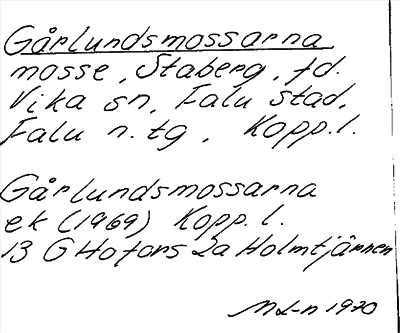 Gårlundsmossarna
mosse, Staberg, fd.
Vika sn, Falu stad,
Falu n. tg, Kopp. l.
Gårlundsmossarna
ek (1969) Kopp. l.
13 G Hofors 2a Holmtjärnen
1970